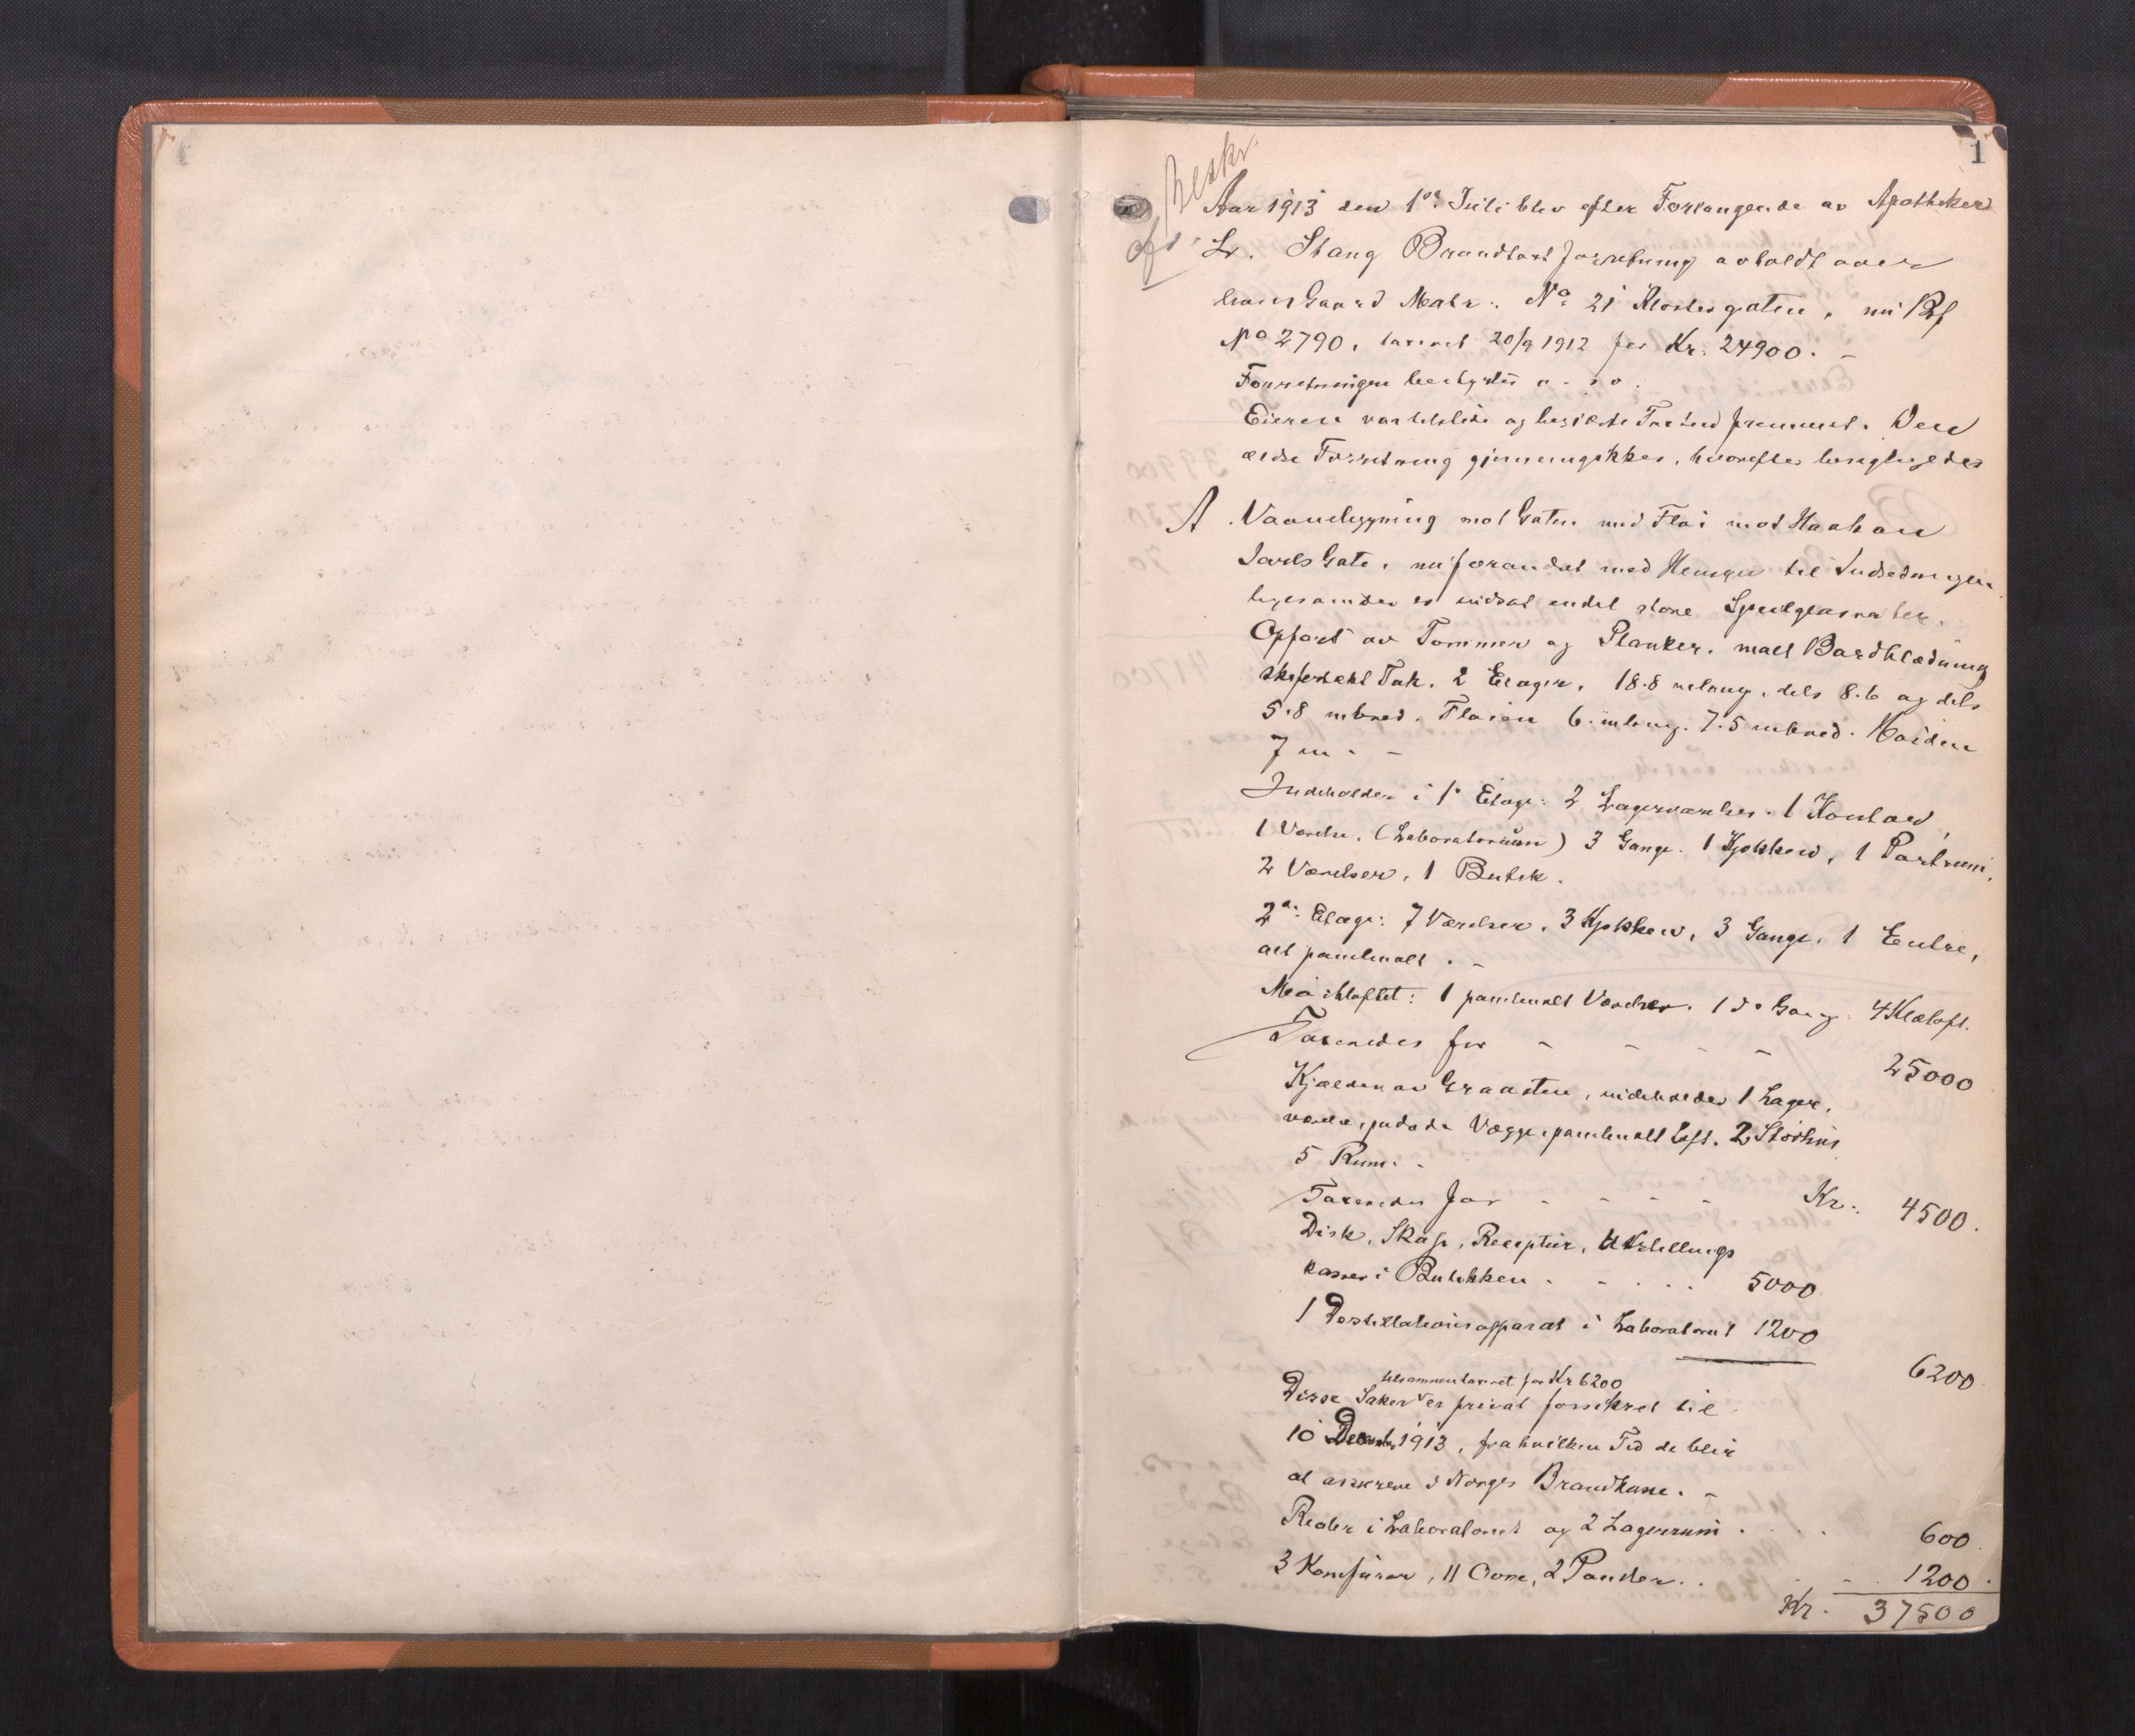 1
Beskr.
Aar 1913 den 1ste Juli blev efter Forlangende av Apotheker
Lr. Stang Brandtaxtforretning avholdt over
hans Gaard Matr. No 21 Klostergaten, nu Bf
No 2790, taxeret 20/9 1912 for Kr. 24900. -
Forretningen bestyrtes o. s. v.
Eieren var tilstede og besikte Taxten fremmet. Den
ældre Forretning gjennemgikkes, hvorefter besigtigedes
A. Vaanebygning mot Gaten med Fløi mot Haakon
Jarls Gate, nu forandret med Hensyn til Indredningen
ligesom der er indsat endel store Speilglasruter.
Opført av Tømmer og Planker, malt Bordklædning
skifertækt Tak. 2 Etager, 18.8 m lang, dels 8.6 og dels
5.8 m bred. Fløien 6. m lang. 7.5 m bred. Høiden
7 m. -
Indeholder i 1. Etage: 2 Lagerværelser. 1 Kontor,
1 Værelse, (Laboratorium) 3 Gange. 1 Kjøkken, 1 Portrum,
2 Værelser, 1 Butik.
2den Etage: 7 Værelser, 3 Kjøkken, 3 Gange, 1 Entre,
alt panelmalt. -
Mørkloftet: 1 panelmalt Værelse. 1 do Gang. 4 Klæloft.
Taxeredes for - - - - 25000
Kjælder av Graasten, indeholder 1 Lager-
værelse, pudsede Vægge, panelmalt Loft. 2
5 Rum. -
Taxeredes for - - - - Kr. 4500.
Disk, Skafe, Receptur, Utstillings
kasser i Butikken - - . . . 5000
1 Destillationsapparat i Laboratoriet 1200
6200
tilsammen taxeret for Kr 6200
Disse Saker er privat forsikret til
10 Decemb 1913, fra hvilken Tid de blir
at assurere i Norges Brandkasse. -
Reoler i Laboratoriet og 2 Lagerrum . . . . 600.
3 Komfurer, 11 Ovne, 2 Pander. . - - 1200.
Kr. 37500